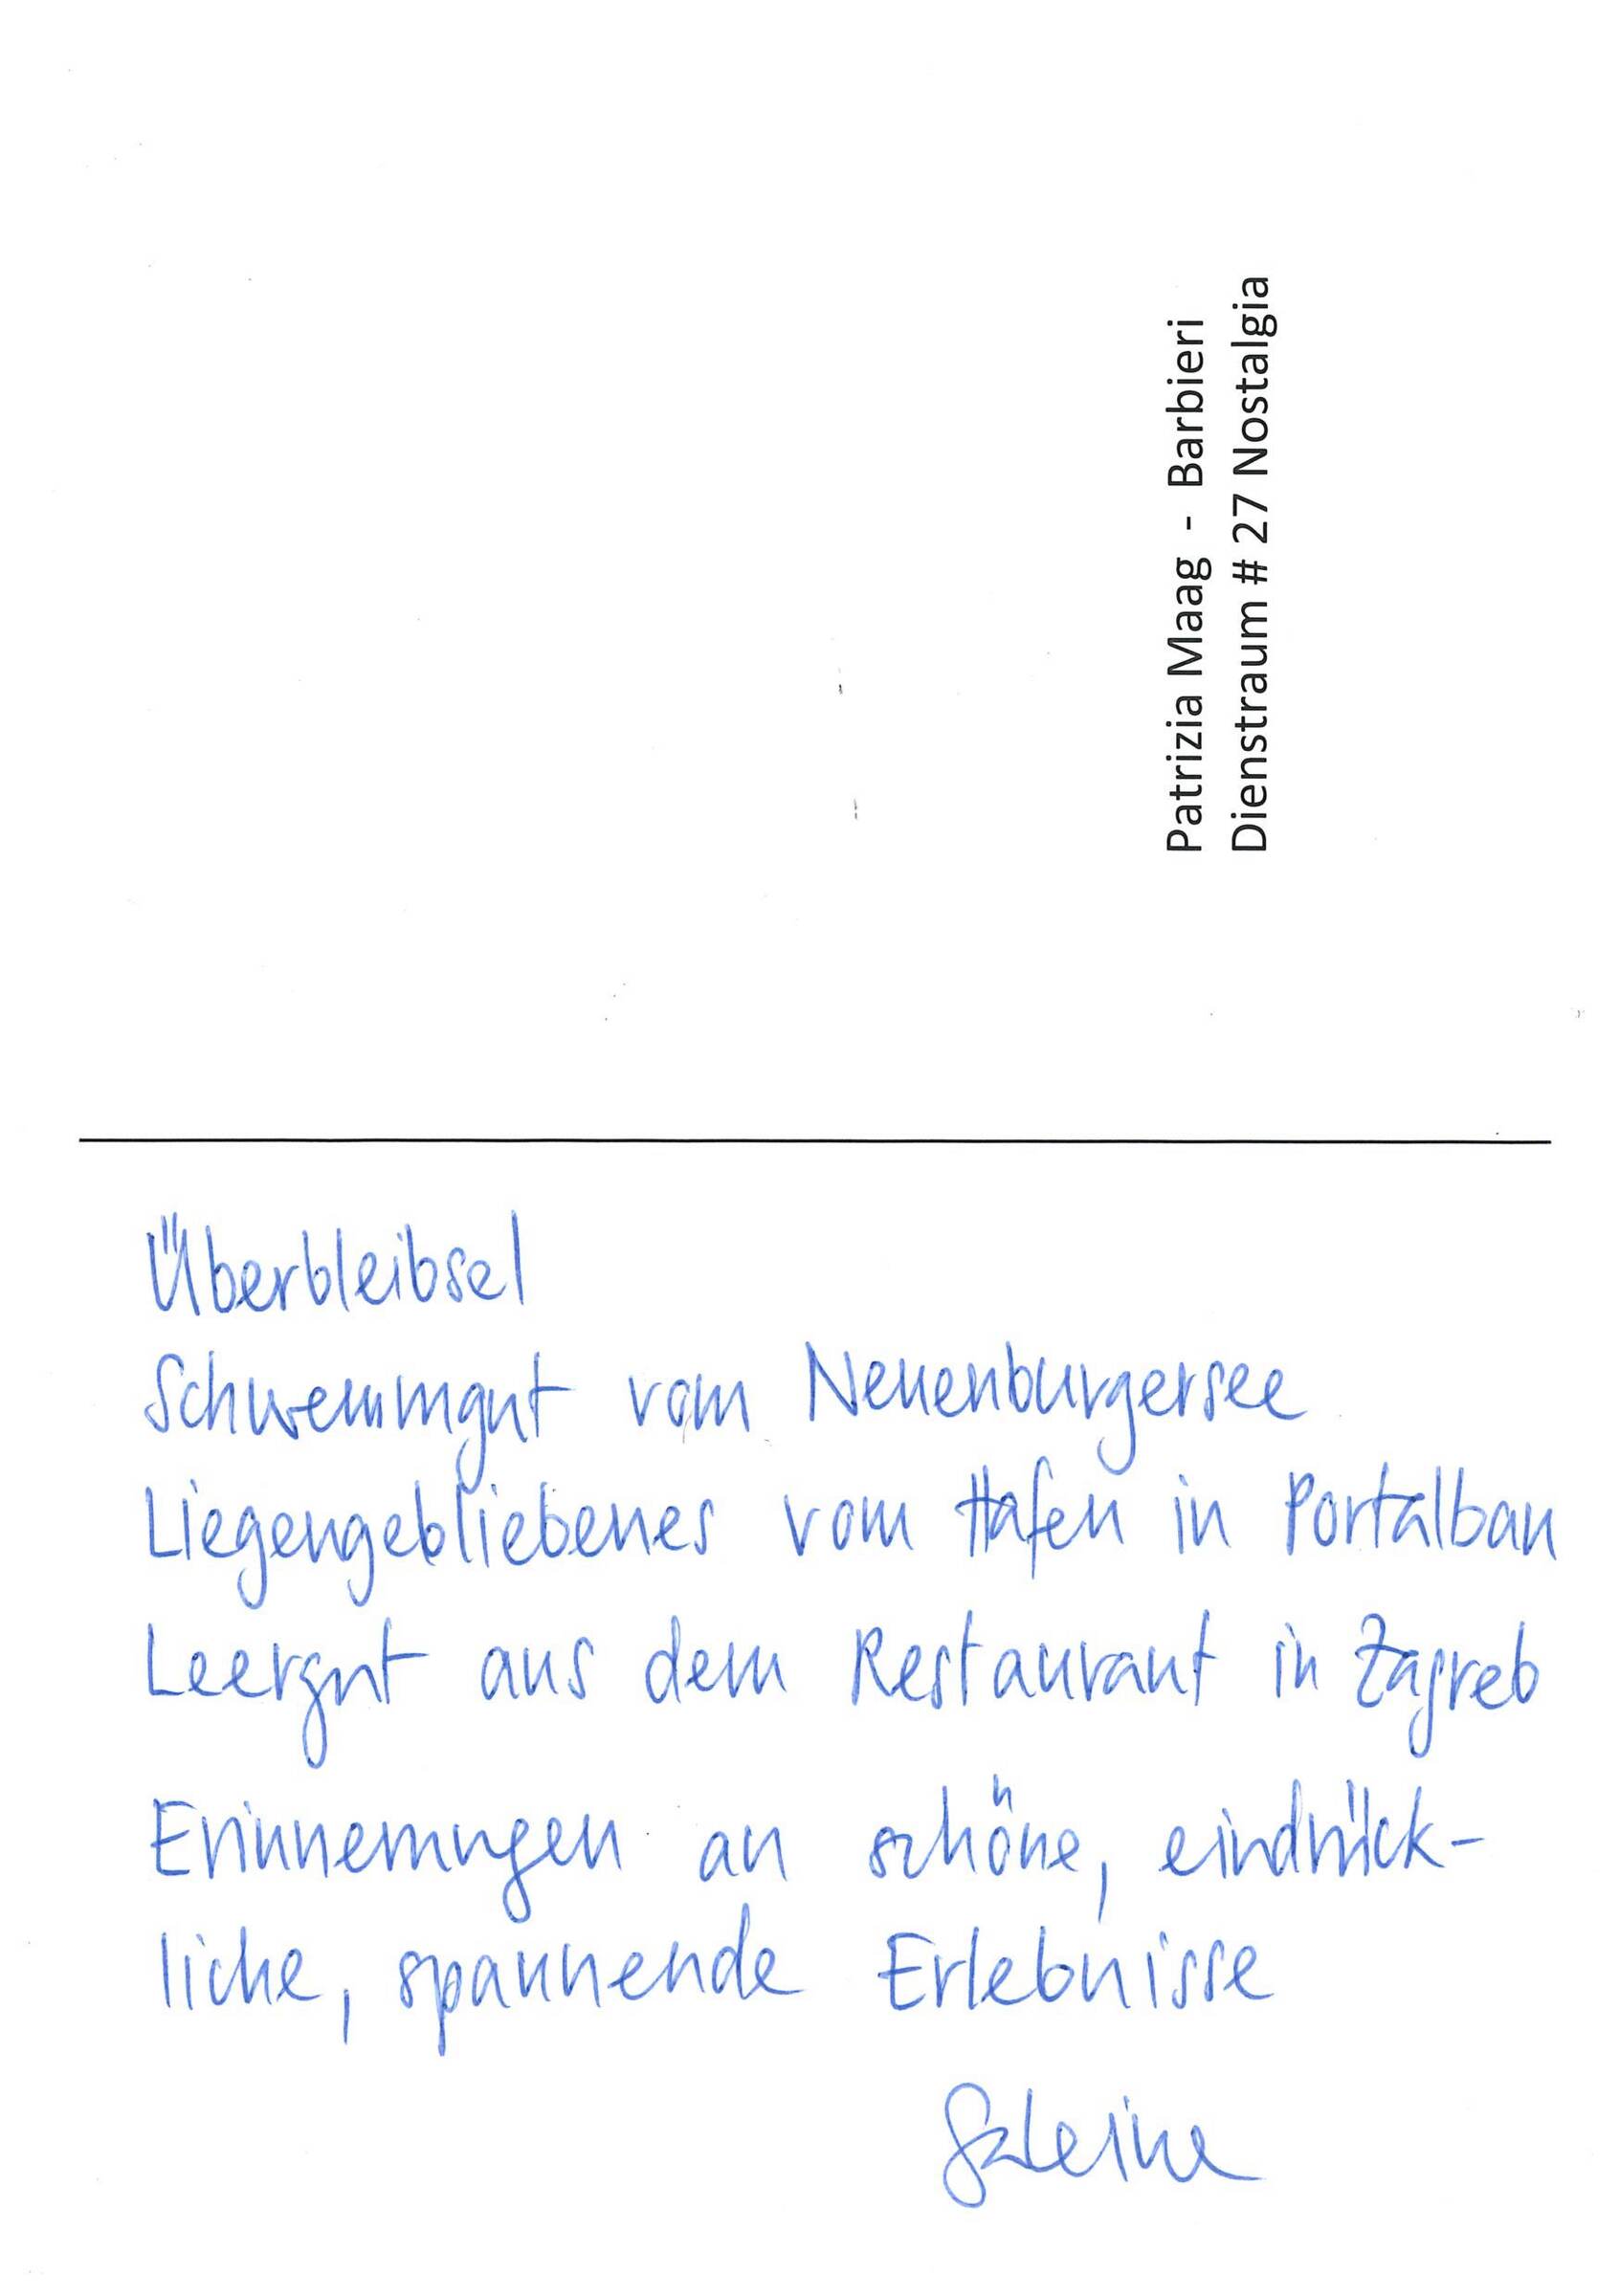 Patrizia Maag - Barbieri
Dienstraum # 27 Nostalgia
Überbleibsel
Schwemmgut vom Neuenburgersee
Liegengebliebenes vom Hafen in Portalban
Leergut aus dem Restaurant in Zagreb
Erinnerungen an schöne, eindrück-
liche, spannende Erlebnisse